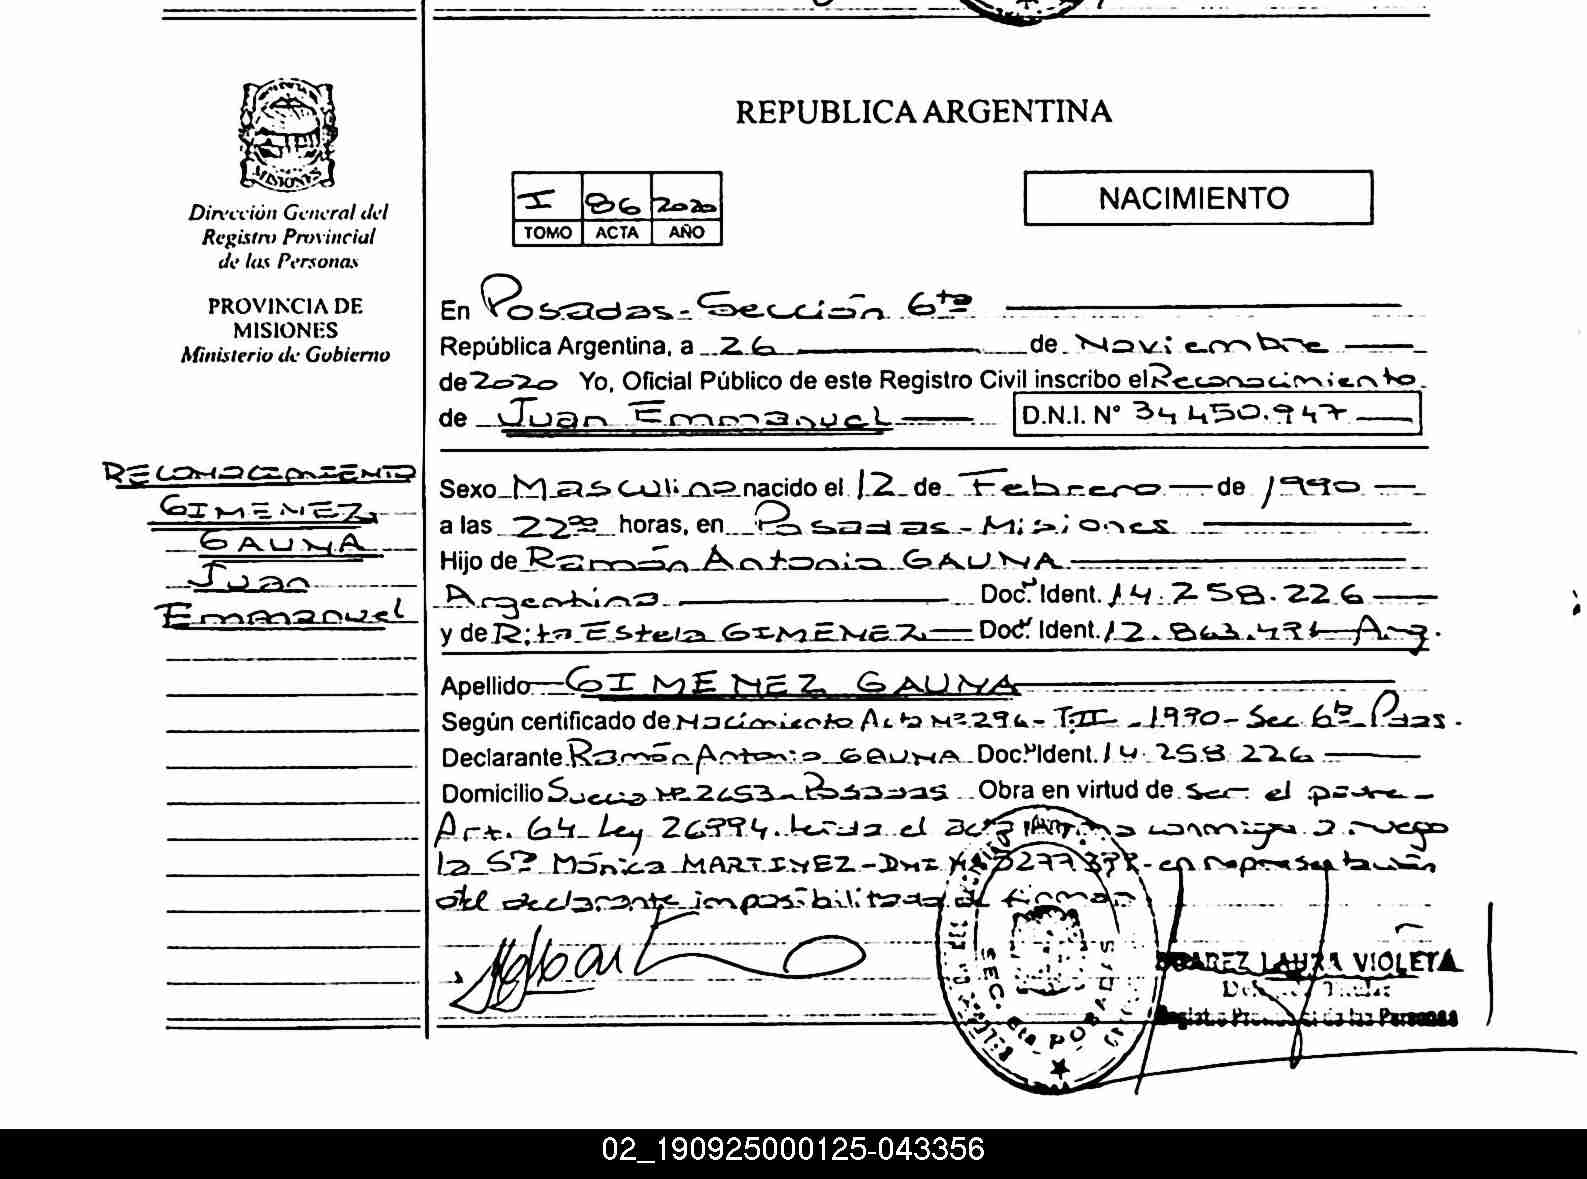 REPUBLICA ARGENTINA
MISIONES
Dirección General del
Registro Provincial
de las Personas
PROVINCIA DE
MISIONES
Ministerio de Gobierno
I 86 2020
TOMO ACTA AÑO
NACIMIENTO
En Posadas - Sección 6ta
República Argentina, a 26 de Noviembre
de 2020 Yo, Oficial Público de este Registro Civil inscribo el Reconocimiento
de Juan Emmanuel D.N.I. N° 34.450.947
RECONOCIMIENTO
GIMENEZ
GAUNA
Juan
Emmanuel
Sexo Masculino nacido el 12 de Febrero de 1990
a las 22 00 horas, en Posadas - Misiones
Hijo de Ramón Antonio GAUNA
Argentino Doc. Ident. 14.258.226
y de Rita Estela GIMENEZ Doc. Ident. 12. Arg.
Apellido GIMENEZ GAUNA
Según certificado de Nacimiento Acta Nº 296 - T.II - 1990 - Sec 6ta Pdas.
Declarante Ramón Antonio GAUNA Doc. Ident. 14.258.226
Domicilio Suecia Nº 2653 - Posadas Obra en virtud de ser el padre -
Art. 64 Ley 26994. Leida el acta firma conmigo a ruego
la Sra Mónica MARTINEZ - DNI Nº en representación
del declarante imposibilitado de firmar
SEC. 6ta POSADAS
LAURA VIOLETA
Registro Provincial de las Personas
02_190925000125-043356